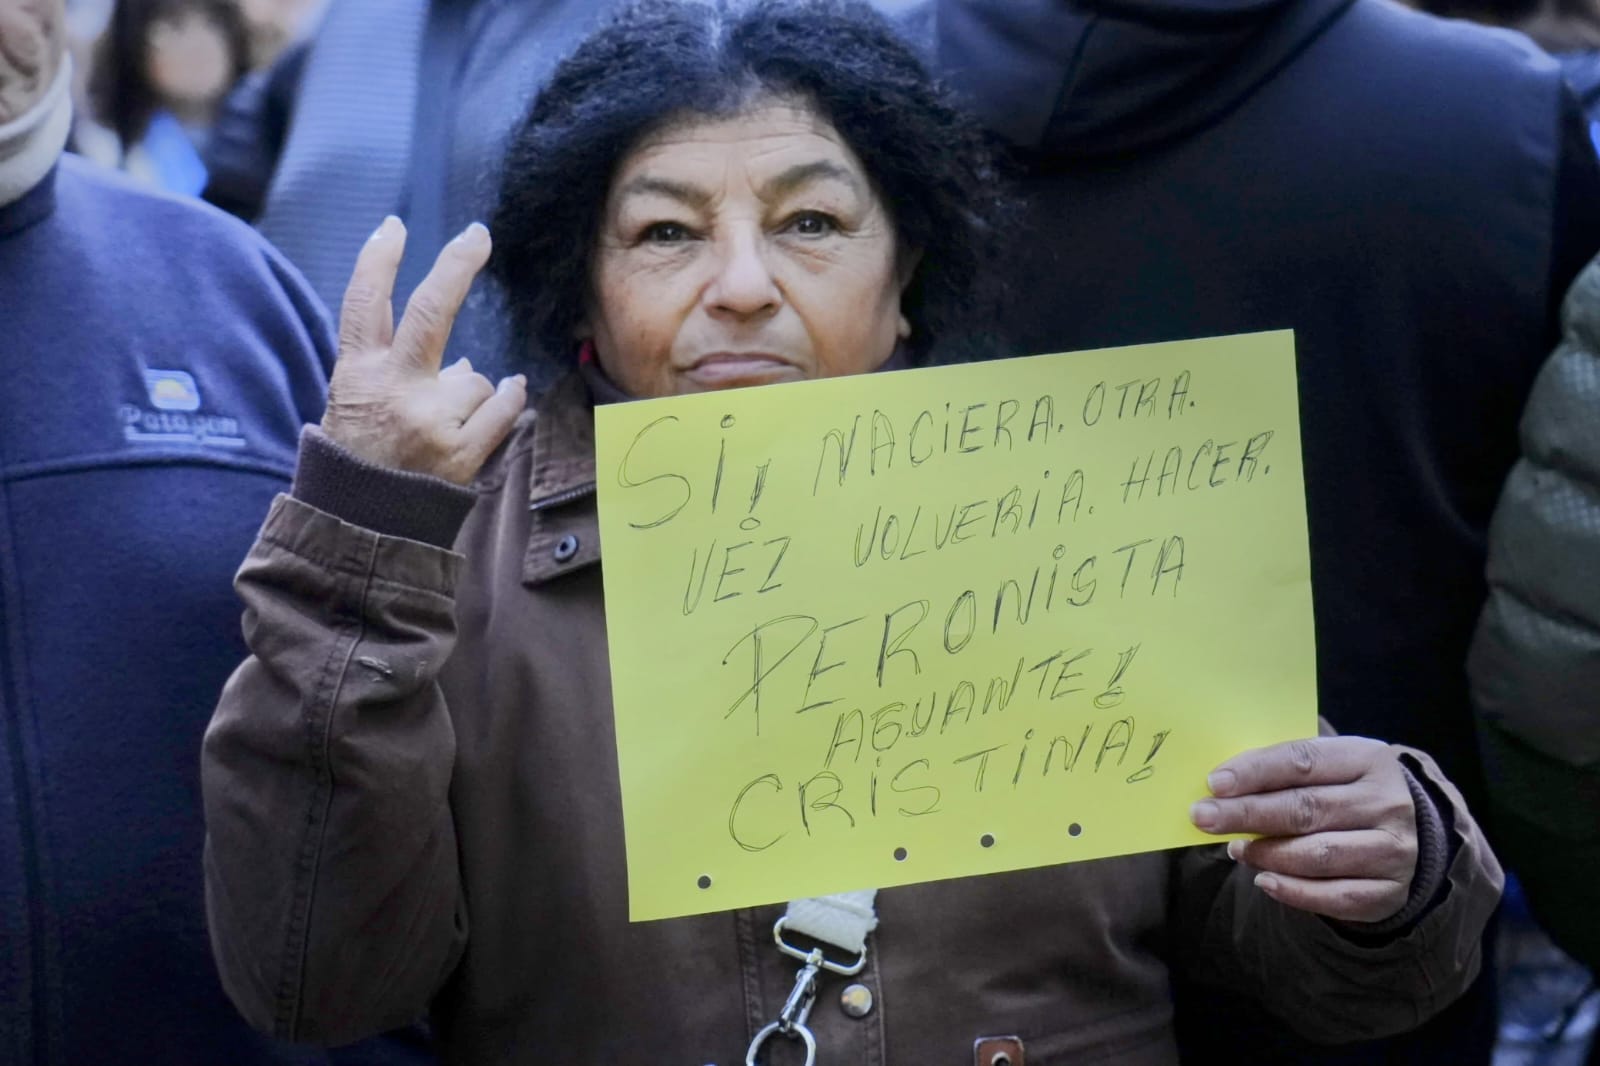 Patagon
SI! NACIERA. OTRA.
VEZ VOLVERIA. HACER.
PERONISTA
AGUANTE!
CRISTINA!